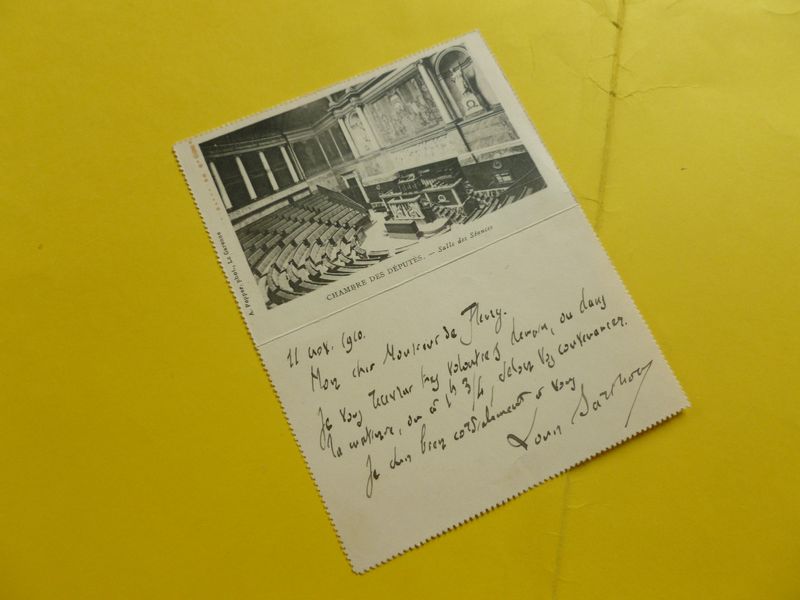 A. Pepper phot., La Garenne
CHAMBRE DES DÉPUTÉS. — Salle des Séances
11 nov. 1910.
Mon cher Monsieur de Fleury.
Je vous recevrai très volontiers demain, ou dans
la matinée, ou à 1h 3/4, selon vos convenances.
Je suis bien cordialement à vous
Louis Barthou